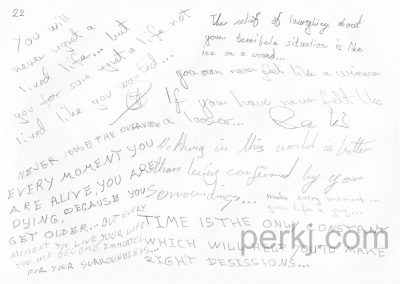 22
You will
never regret a
lived life... but
you for sure regret a life not
lived like you wanted...
The relief of laughing about
your terrible situation is like
ice on a wound...
you can never feel like a winner
If you have never felt like
a looser...
NEVER LOOSE THE OVERVIEW
EVERY MOMENT YOU
ARE ALIVE, YOU ARE
DYING. BECAUSE YOU
GET OLDER... BUT EVERY
MOMENT YOU LIVE YOUR LIFE
YOU WILL BECOME IMMORTAL
FOR YOUR SURROUNDINGS...
Nothing in this world is better
than being confirmed by your
surroundings...
make every moment in
your life a
TIME IS THE ONLY CONSTANT
WHICH WILL HELP YOU TO MAKE
RIGHT DESISSIONS...
perkj.com